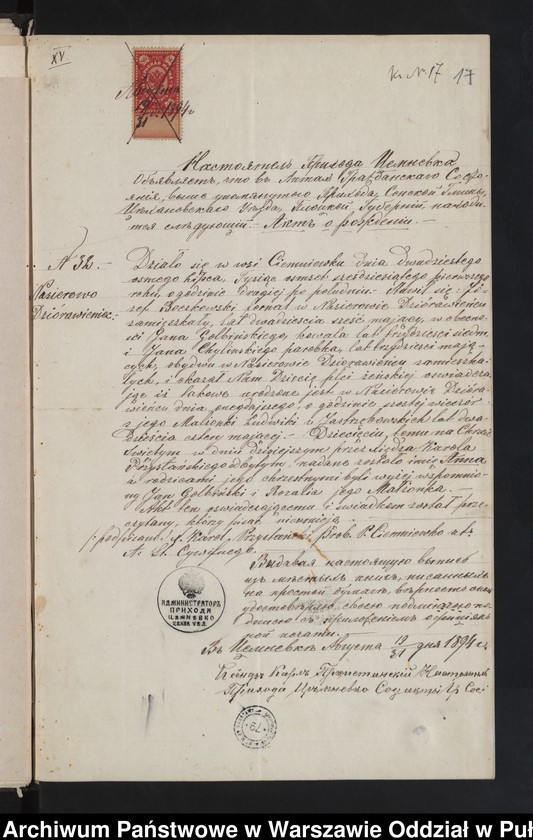 XV
Kr N 17 17
Августа
19
31 1894 г
Настоятель Прихода Цемневка
Объявляетъ, что въ Актахъ Гражданскаго Состо-
янія, выше упомянутаго Прихода, Сонской Гмины,
Цехановскаго Уѣзда, Плоцкой Губерніи находи-
тся слѣдующій Актъ о рожденіи. —
N 32. —
Nasierowo
Dziurawieniec. —
Działo się w wsi Ciemniewku dnia dwudziestego
ósmego Lipca, Tysiąc ośmset sześćdziesiątego pierwszego
roku o godzinie drugiej po południu. Stawił się Jó-
zef Boczkowski
zamieszkały, lat dwadzieścia sześć mający, w obecno-
ści Jana Gołbińskiego, kowala lat trzydzieści siedm
i Jana Chylińskiego parobka, lat trzydzieści mają-
cych, obydwu w Nasierowie Dziurawieńcu zamieszka-
łych, i okazał Nam Dziecię płci żeńskiej oświadcza-
jąc iż takowe urodzone jest w Nasierowie Dziura-
wieńcu dnia onegdajszego o godzinie szóstej wieczór
z jego Małżonki Ludwiki z Jastrzębowskich lat dwa-
dzieścia cztery mającej. — Dziecięciu temu na Chrzcie
Świętym w dniu dzisiejszym przez Xiędza Karola
odbytym, nadane zostało imie Anna
a rodzicami jego chrzestnymi byli wyżej wspomnio-
ny Jan Gołbiński i Rozalia jego Małżonka.
Akt ten oświadczającemu i świadkom został prze-
czytany, którzy pisać nieumieją. —
/:podpisano:/ X. Karol Prob. P. Ciemniewko
Выдавая настоящую выпись
изъ мѣстныхъ книгъ, писанныхъ
на простой бумагѣ, вѣрность оной
удостовѣряю своею
подписью съ приложеніемъ
печати.
Въ Цемневкѣ Августа 19/31 дня 1894 г.
Ксендзъ Карлъ Настоятель
Прихода Цемневко
АДМИНИСТРАТОРЪ
ПРИХОДА
ЦЕМНЕВКО
ЦѢХАН. УѢЗ.
79
Archiwum Państwowe w Warszawie Oddział w Puł